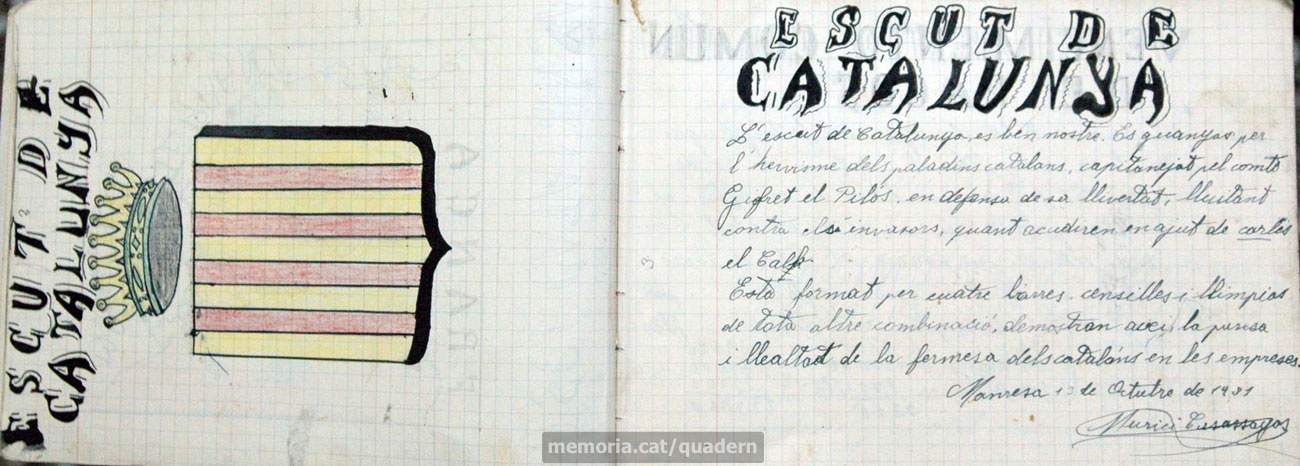 ESCUT DE
CATALUNYA
ESCUT DE
CATALUNYA
L'escut de Catalunya, es ben nostre. Es guanyat per
l'heruisme dels paladins catalans, capitanejat pel comte
Gifret el Pilós, en defensa de sa llivertat, lluitant
contra els invasors, quant acudiren en ajut de carles
el Calb.
Está format per cuatre barres, censilles i llimpias
de tota altre combinació, demostran aixi, la puresa
i llealtad de la fermesa dels cataláns en les empreses.
Manresa 13 de Octutre de 1931
Murici Casasayas
memoria.cat/quadern